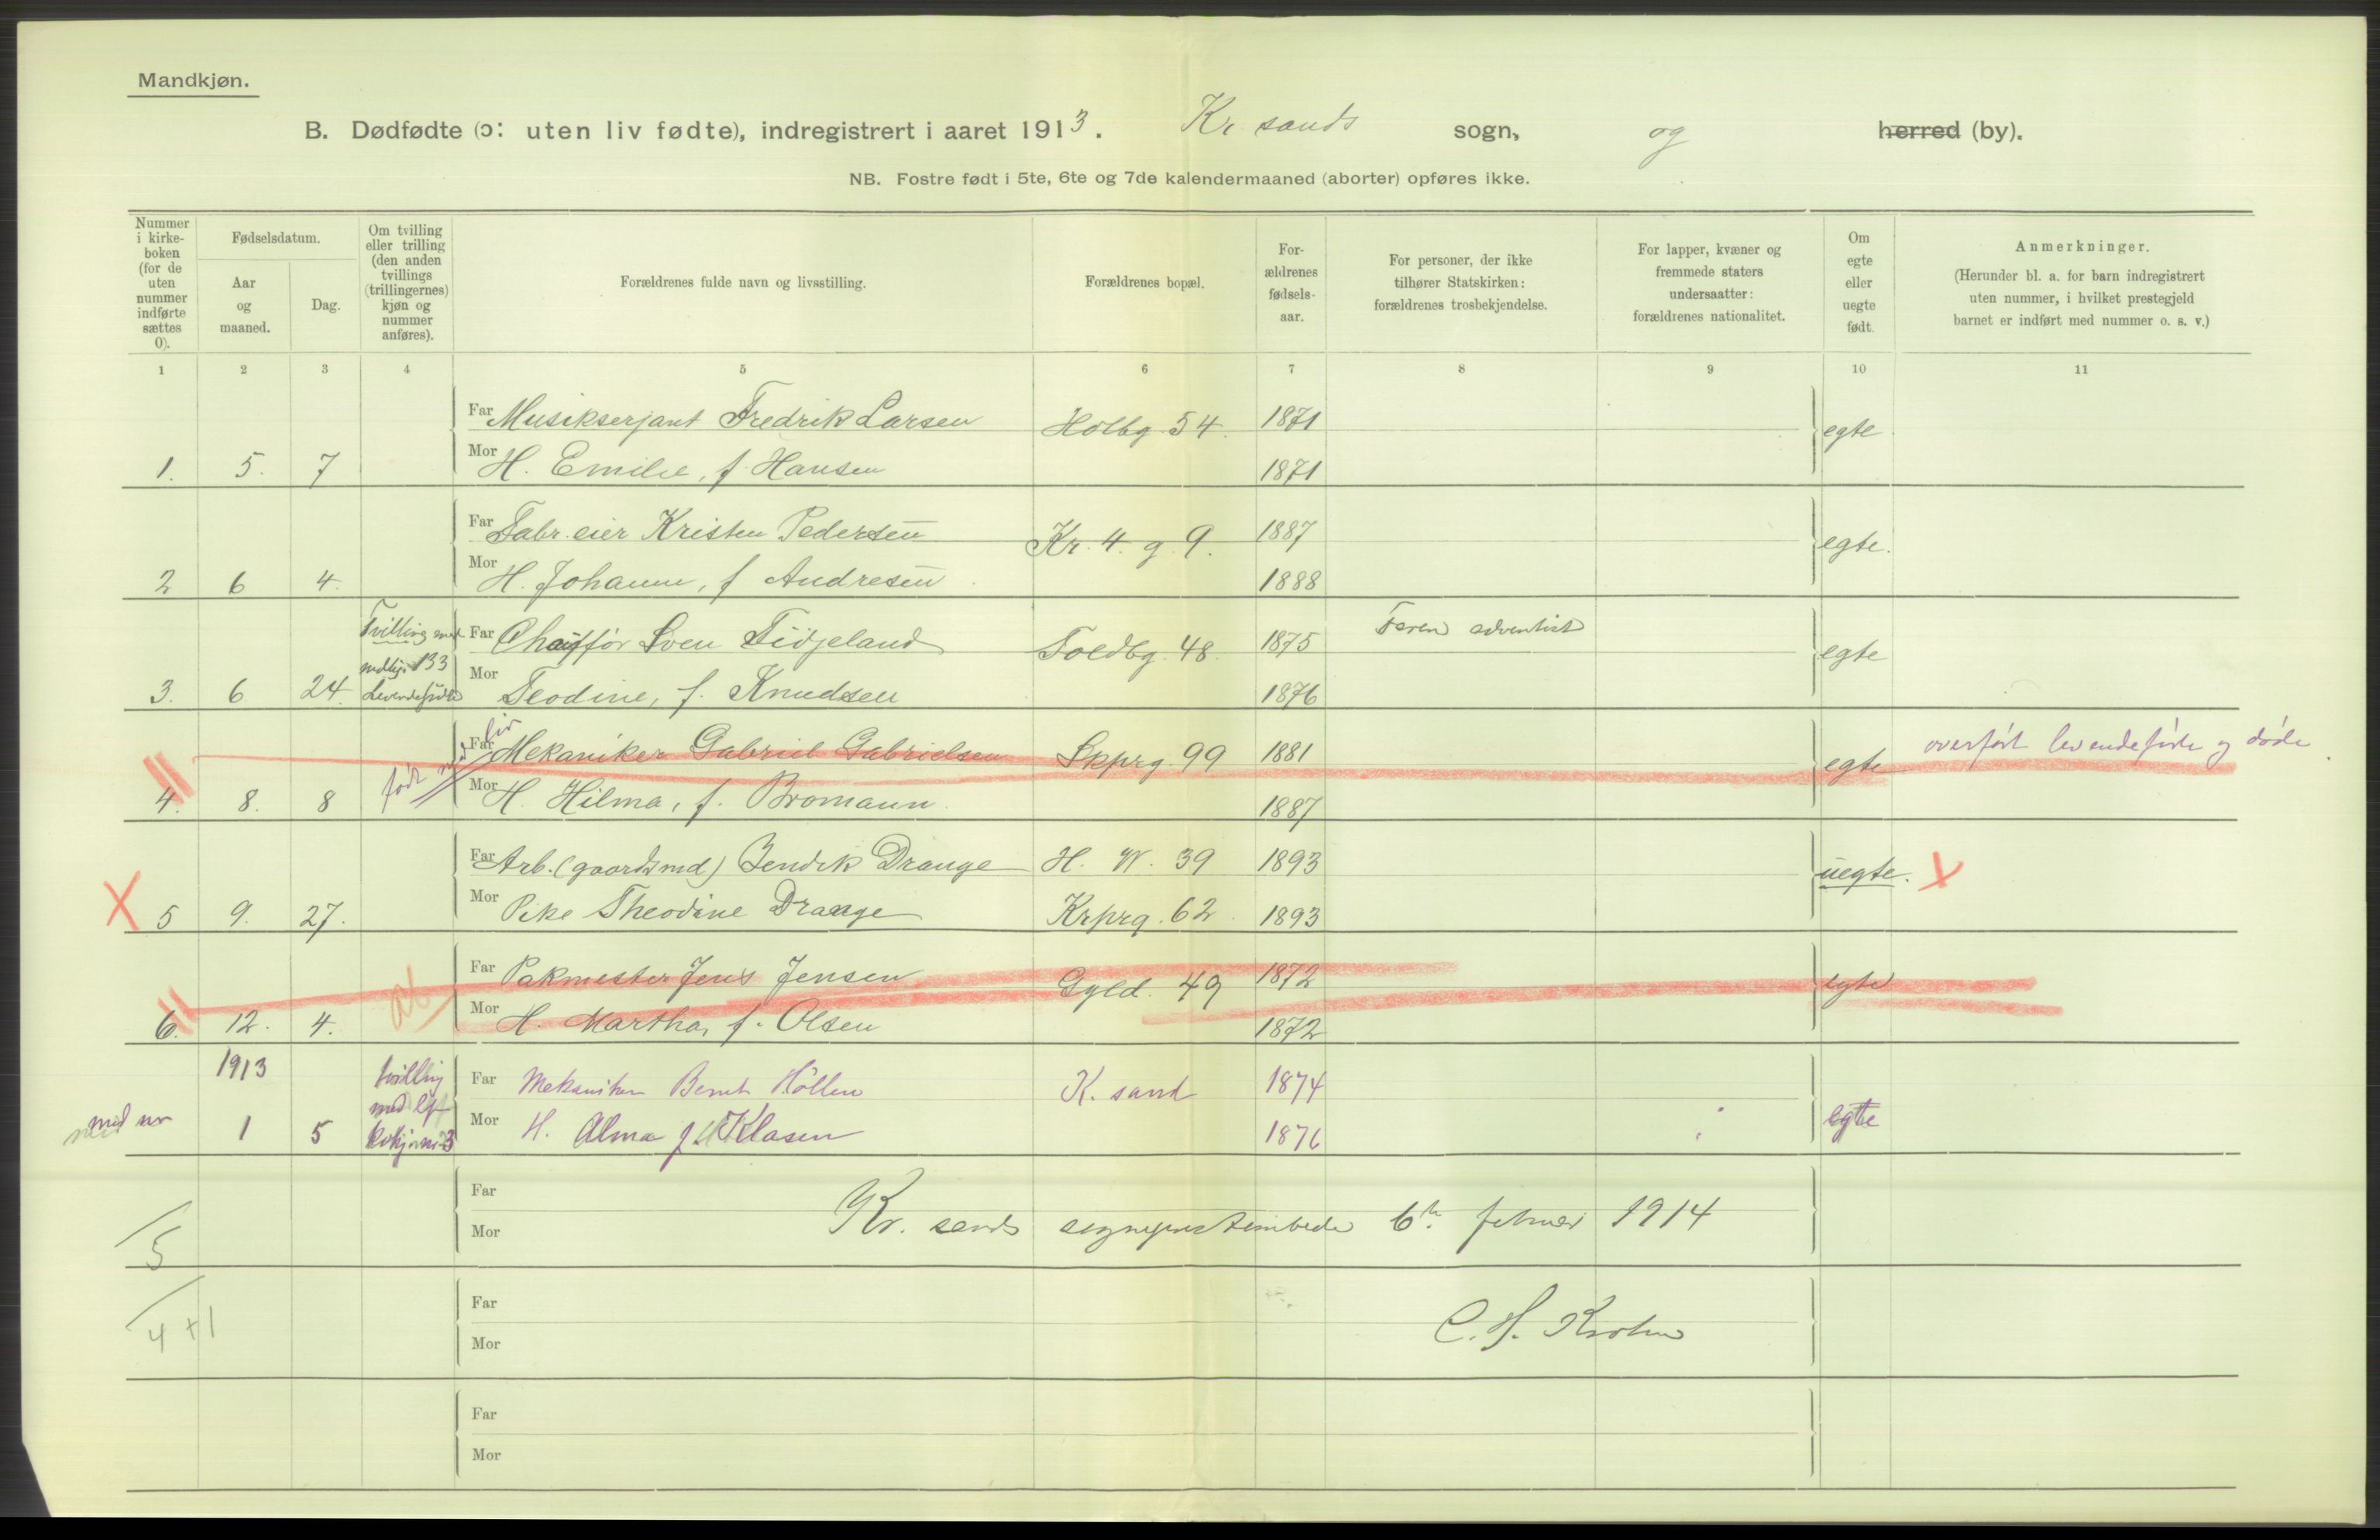 Mandkjøn.
B. Dødfødte (ɔ: uten liv fødte), indregistrert i aaret 1913. Kr sands sogn, og herred (by).
NB. Fostre født i 5te, 6te og 7de kalendermaaned (aborter) opføres ikke.
Nummer i kirke- boken (for de uten nummer indførte sættes 0).
Fødselsdatum.
Aar og maaned.
Dag.
Om tvilling eller trilling (den anden tvillings (trillingernes) kjøn og nummer anføres).
Forældrenes fulde navn og livsstilling.
Forældrenes bopæl.
For- ældrenes fødsels- aar.
For personer, der ikke tilhører Statskirken: forældrenes trosbekjendelse.
For lapper, kvæner og fremmede staters undersaatter: forældrenes nationalitet.
Om egte eller uegte født.
Anmerkninger.
(Herunder bl. a. for barn indregistrert uten nummer, i hvilket prestegjeld barnet er indført med nummer o. s. v.)
1 2 3 4 5 6 7 8 9 10 11
Far Musikserjant Fredrik Larsen Holbg 54. 1871 egte
1. 5. 7 Mor H. Emilie, f. Hansen 1871
Far Fabr. eier Kristen Pedersen Kr. 4. g. 9. 1887 egte.
2 6 4. Mor H. Johanne, f Andresen 1888
Tvilling med Far Chauffør Sven Tidjeland Toldbg. 48. 1875 Faren adventist egte
133
3. 6 24. Levendefødte Mor Teodine, f. Knudsen 1876
født med liv
Far Mekaniker Gabriel Gabrielsen Skprg 99 1881 egte overført levendefødte og døde
4. 8. 8 Mor H. Hilma, f. Bromann. 1887
Far Arb. (gaardsmd) Bendik Drange H. W. 39 1893 uegte. X
X 5 9. 27. Mor Pike Theodine Drange Krprg. 62. 1893
Far Pakmester Jens Jensen Gyld. 49 1872 egte
6. 12. 4. ab Mor H. Martha, f. Olsen 1872
1913 tvilling Far Mekaniker Bernt Höllen K. sand 1874 egte
med
1 5 Mor H. Alma f Klasen 1876
Far
Mor
Kr. sands sogneprestembede 6te februar 1914
5
Far
Mor
4 + 1
C. F. Krohn
Far
Mor